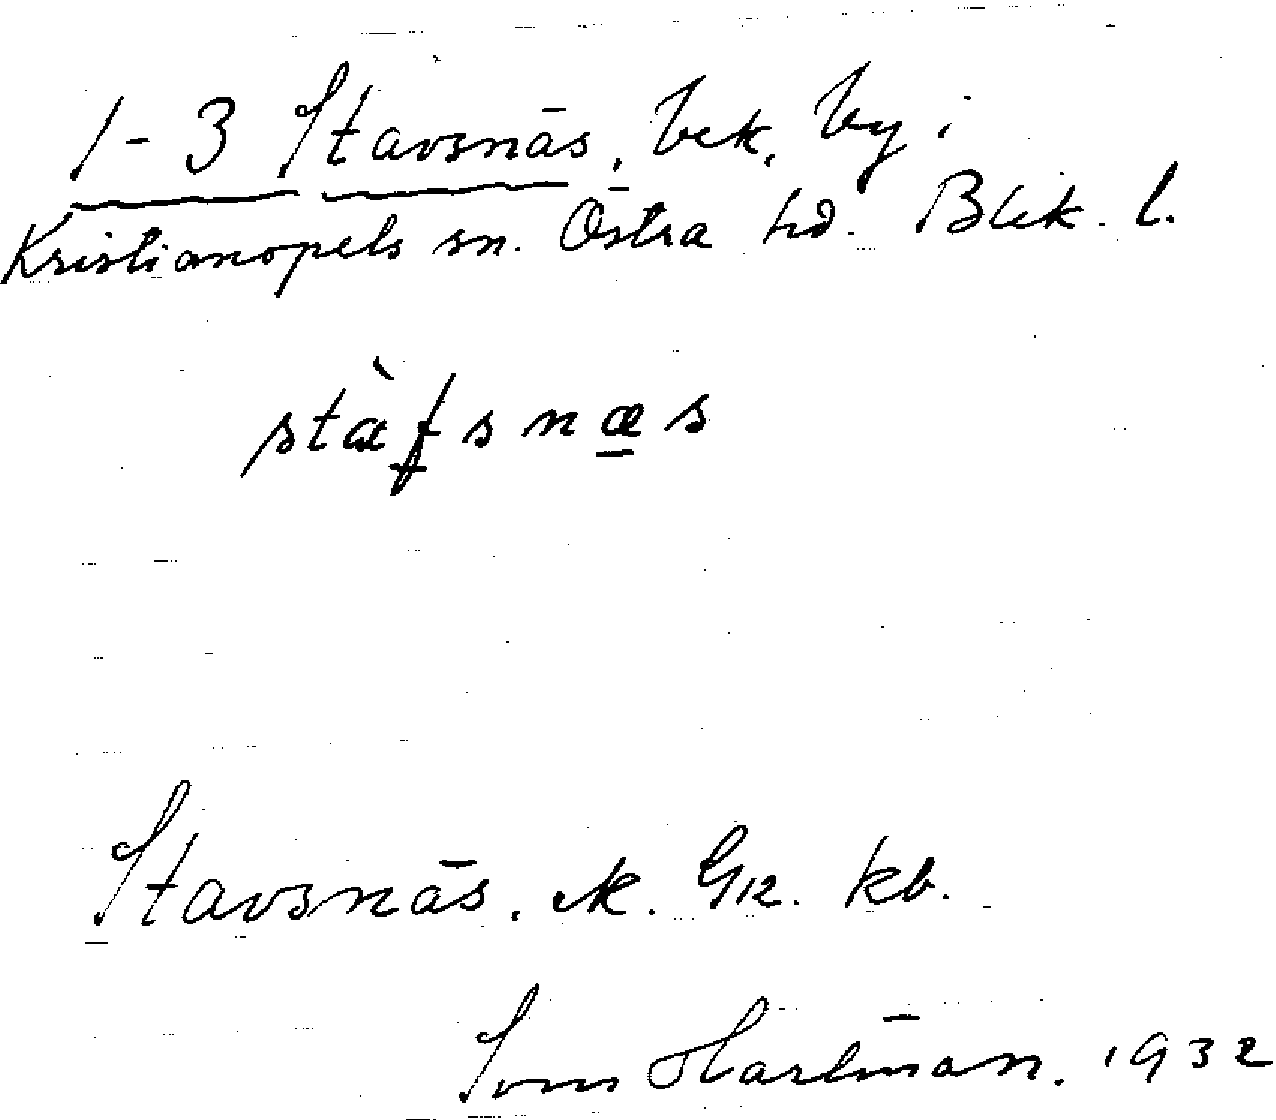 1-3 Stavsnäs, bek, by i
Kristianopels sn. Östra hd. Blek. l.
stàfsnæs
Stavsnäs. ek. Gk. kb.
Sven Hartman. 1932